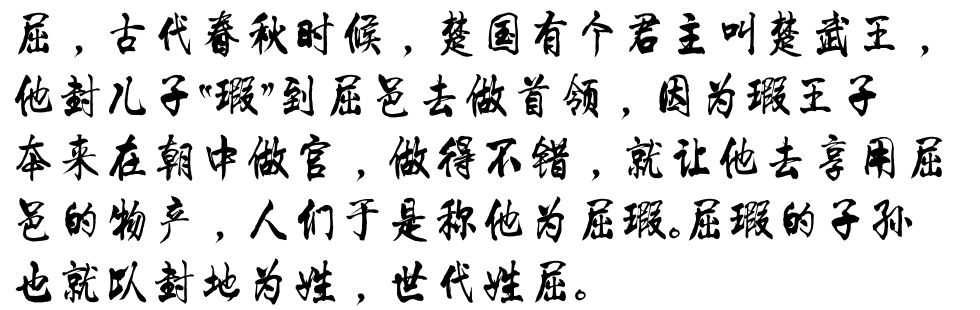 屈，古代春秋时候，楚国有个君主叫楚武王，
他封儿子“瑕”到屈邑去做首领，因为瑕王子
本来在朝中做官，做得不错，就让他去享用屈
邑的物产，人们于是称他为屈瑕。屈瑕的子孙
也就以封地为姓，世代姓屈。